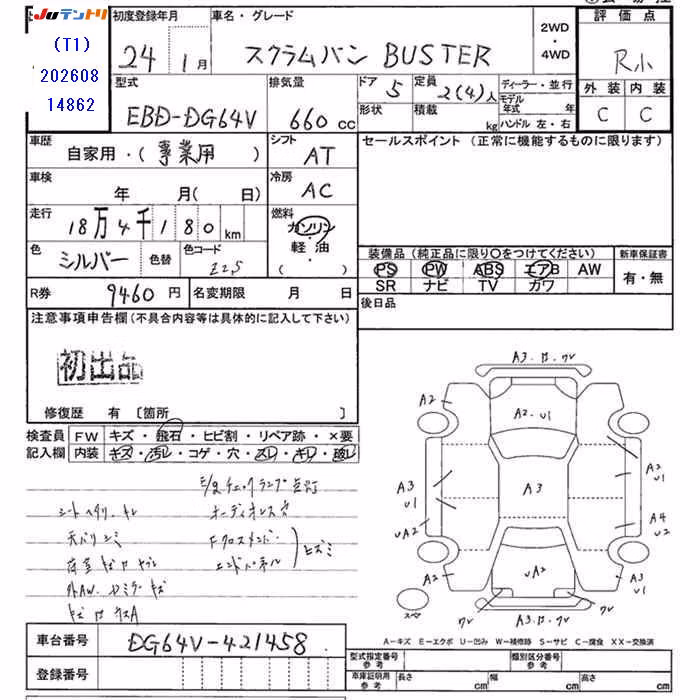 JUテントリ
(T1)
202608
14862
初度登録年月
24 1月
車名・グレード
スクラムバン BUSTER
2WD
・
4WD
評価点
R小
外装 内装
C C
型式
EBD-DG64V
排気量
660cc
ドア 5
形状
定員 2(4)人
積載 kg
ディーラー・並行
モデル
年式 年
ハンドル 左・右
車歴
自家用・(事業用)
シフト
AT
セールスポイント(正常に機能するものに限ります)
車検
年 月(日)
冷房
AC
走行
18万4千180km
燃料
ガソリン
軽・油
( )
色
シルバー
色替
色コード
Z2S
装備品(純正品に限り○をつけてください)
PS PW ABS エアB AW
SR ナビ TV カワ
新車保証書
有・無
R券 9460円
名変期限 月 日
後日品
注意事項申告欄(不具合内容等は具体的に記入して下さい)
初出品
修復歴 有 〔箇所 〕
検査員
記入欄
FW キズ・飛石・ヒビ割・リペア跡・×要
内装 キズ・汚レ・コゲ・穴・スレ・キレ・破レ
シートヘタリ・キレ
オーディオレス穴
天バリシミ
Fクロスメンバー
エンドパネル
ヒズミ
A3
A2・U1
A2
A3
A3
U1
UA2
A2
UA2
A4
U2
A3
U1
スペア
A－キズ E－エクボ U－凹み W－補修跡 S－サビ C－腐食 XX－交換済
車台番号 DG64V-421458
登録番号
型式指定番号
参考
類別区分番号
参考
車庫証明用
参考
長さ cm
幅 cm
高さ cm